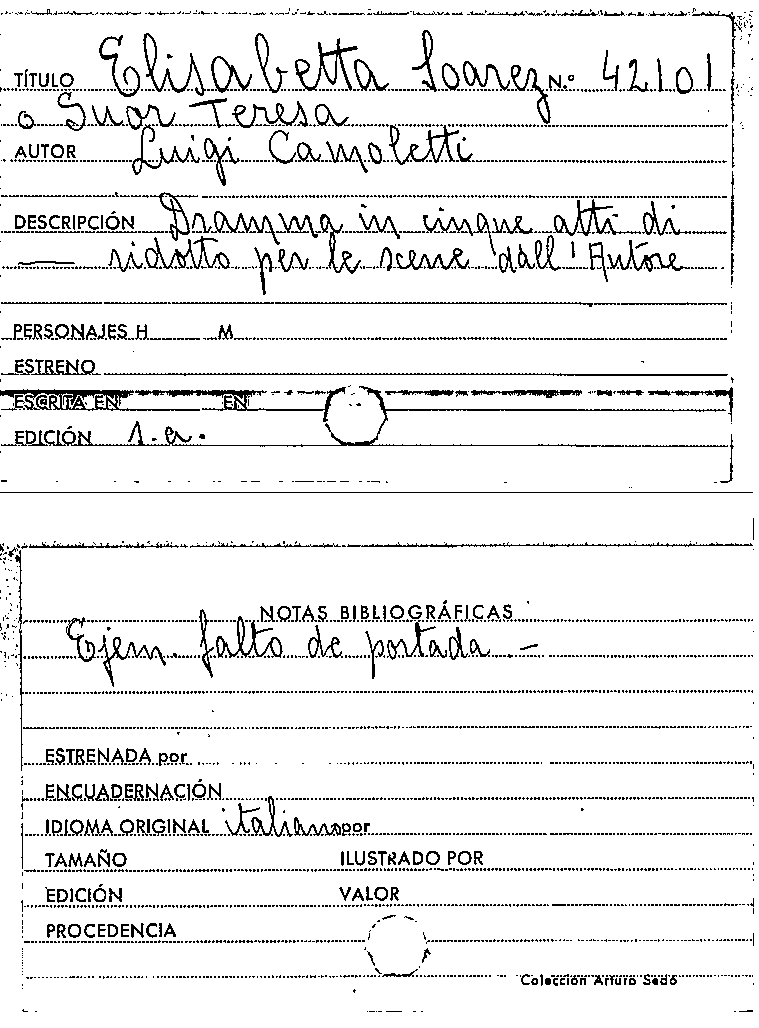 TÍTULO Elisabetta Soarez N.º 42101
o Suor Teresa
AUTOR Luigi Camoletti
DESCRIPCIÓN Dramma in cinque atti di
ridotto per le scene dall'Autore
PERSONAJES H M
ESTRENO
ESCRITA EN EN
EDICIÓN 1.a.
NOTAS BIBLIOGRÁFICAS
Ejem. falto de portada.-
ESTRENADA por
ENCUADERNACIÓN
IDIOMA ORIGINAL italiano por
TAMAÑO ILUSTRADO POR
EDICIÓN VALOR
PROCEDENCIA
Colección Arturo Sedó